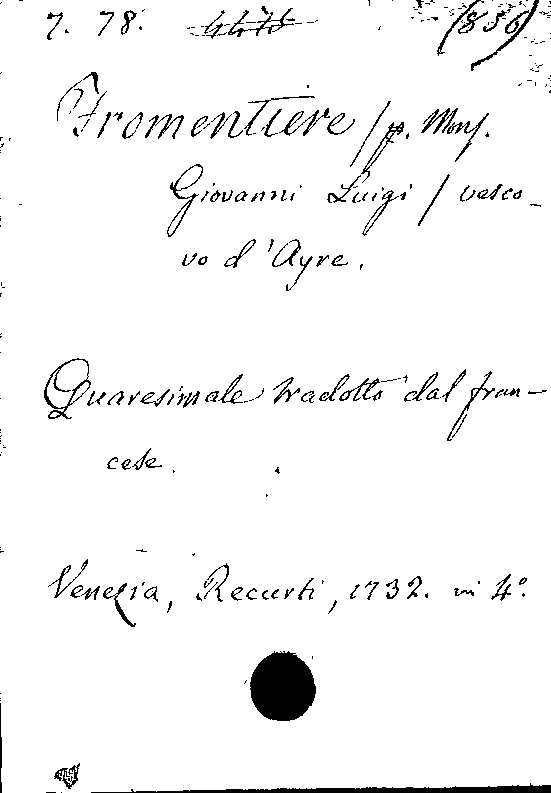 7. 78. 4475 (836)
Fromentiere / p. Mons.
Giovanni Luigi / vesco-
vo d'Ayre.
Quaresimale tradotto dal fran-
cese.
Venezia, Recurti, 1732. in 4º.